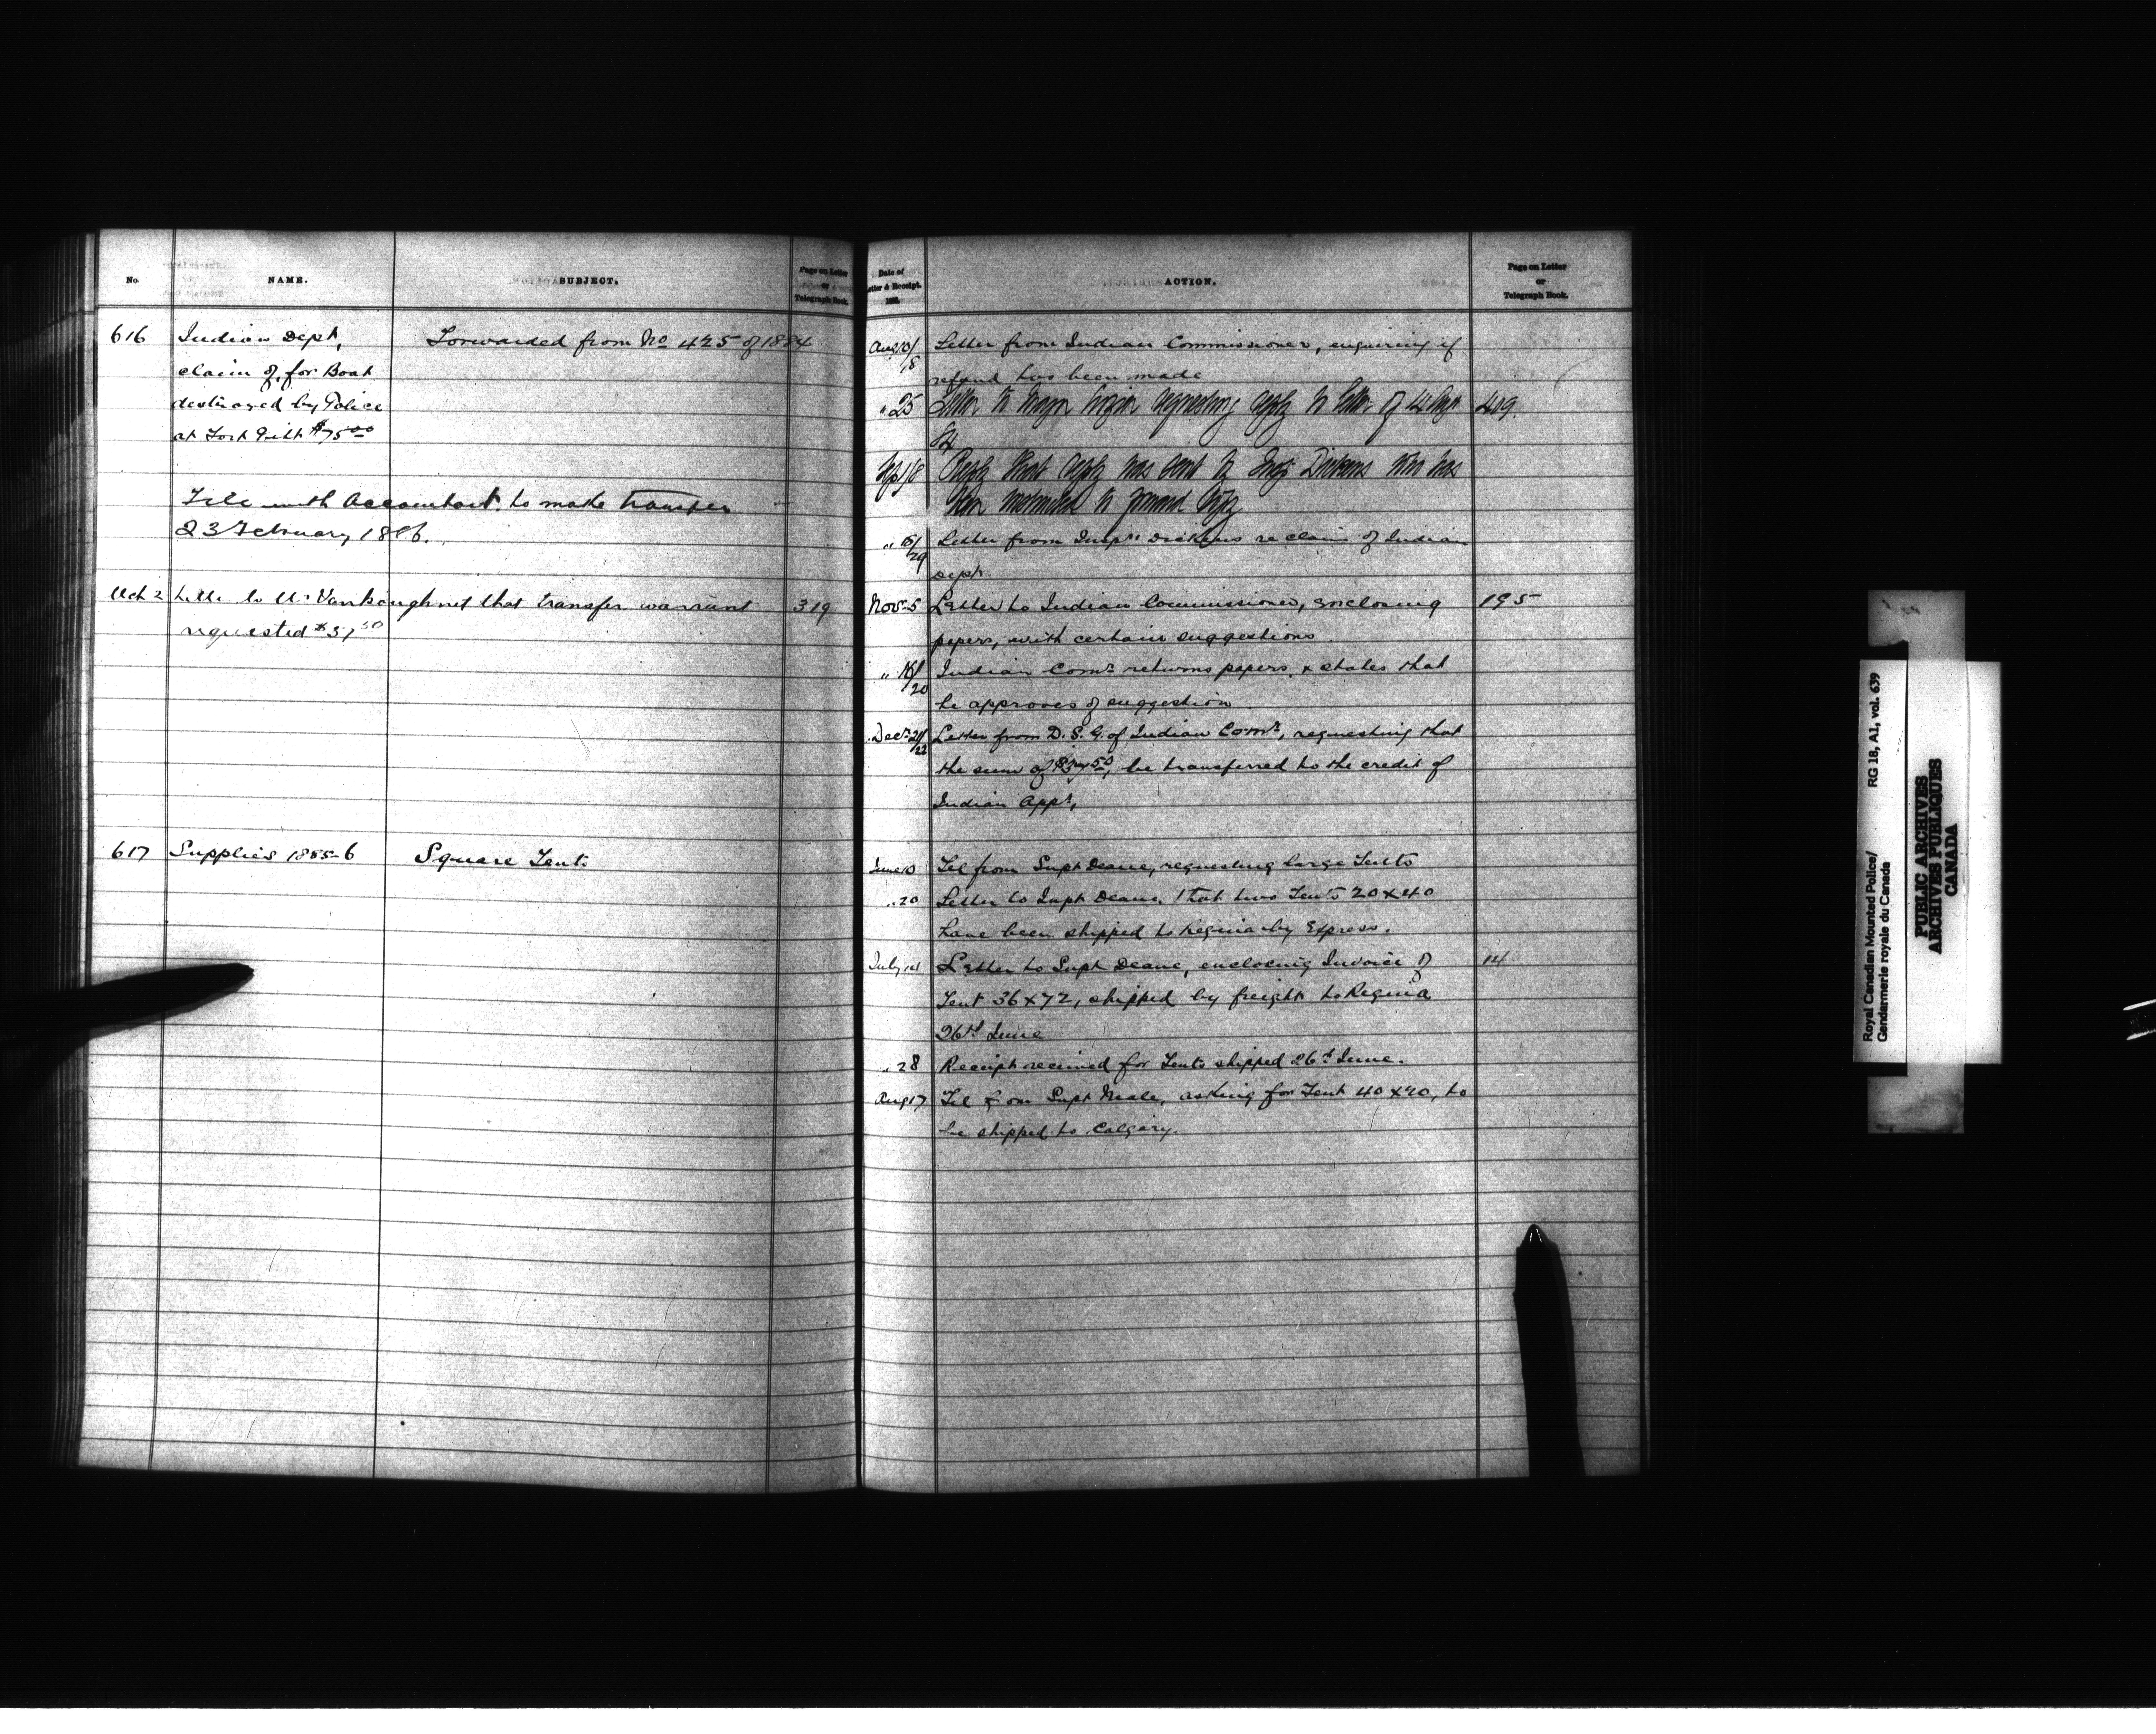 No.
NAME.
SUBJECT.
Page on Letter
or
Telegraph Book.
616
Indian Dept,
Forwarded from No 425 of 1884
claim of, for Boat
destroyed by Police
at Fort Pitt $75.00
File with Accountant to make transfer
23 February 1886.
Mch 2 Letter to Mr Vankoughnet that transfer warrant 319
requested $37.50
617 Supplies 1885-6 Square Tents
Date of
Letter & Receipt.
188
ACTION.
Page on Letter
or
Telegraph Book.
Aug 13/18 Letter from Indian Commissioner, enquiring if
refund has been made
" 25 Letter to Major requesting reply to letter of 14 409.
84
Sep 18 Reply that reply was sent to Insp Dickens who has
been instructed to forward copy
" 15/29 Letter from Inspr Dickens re claim of Indian
Dept.
Nov 5 Letter to Indian Commissioner, enclosing 195
papers, with certain suggestions.
" 15/20 Indian Comr returns papers, & states that
he approves of suggestion.
Decr 21/22 Letter from D. S. G. of Indian Comr, requesting that
the sum of $37.50, be transferred to the credit of
Indian Appr,
June 13 Tel from Supt Deane, requesting large Tents
" 20 Letter to Supt Deane, that two Tents 20 x 40
have been shipped to Regina by Express.
July 14 Letter to Supt Deane, enclosing Invoice of 14
Tent 36 x 72, shipped by freight to Regina
26th June
" 28 Receipt received for Tents shipped 26th June.
Aug 17 Tel from Supt Neale, asking for Tent 40 x 90, to
be shipped to Calgary.
Royal Canadian Mounted Police/ RG 18, A1, vol. 639
Gendarmerie royale du Canada
PUBLIC ARCHIVES
ARCHIVES PUBLIQUES
CANADA